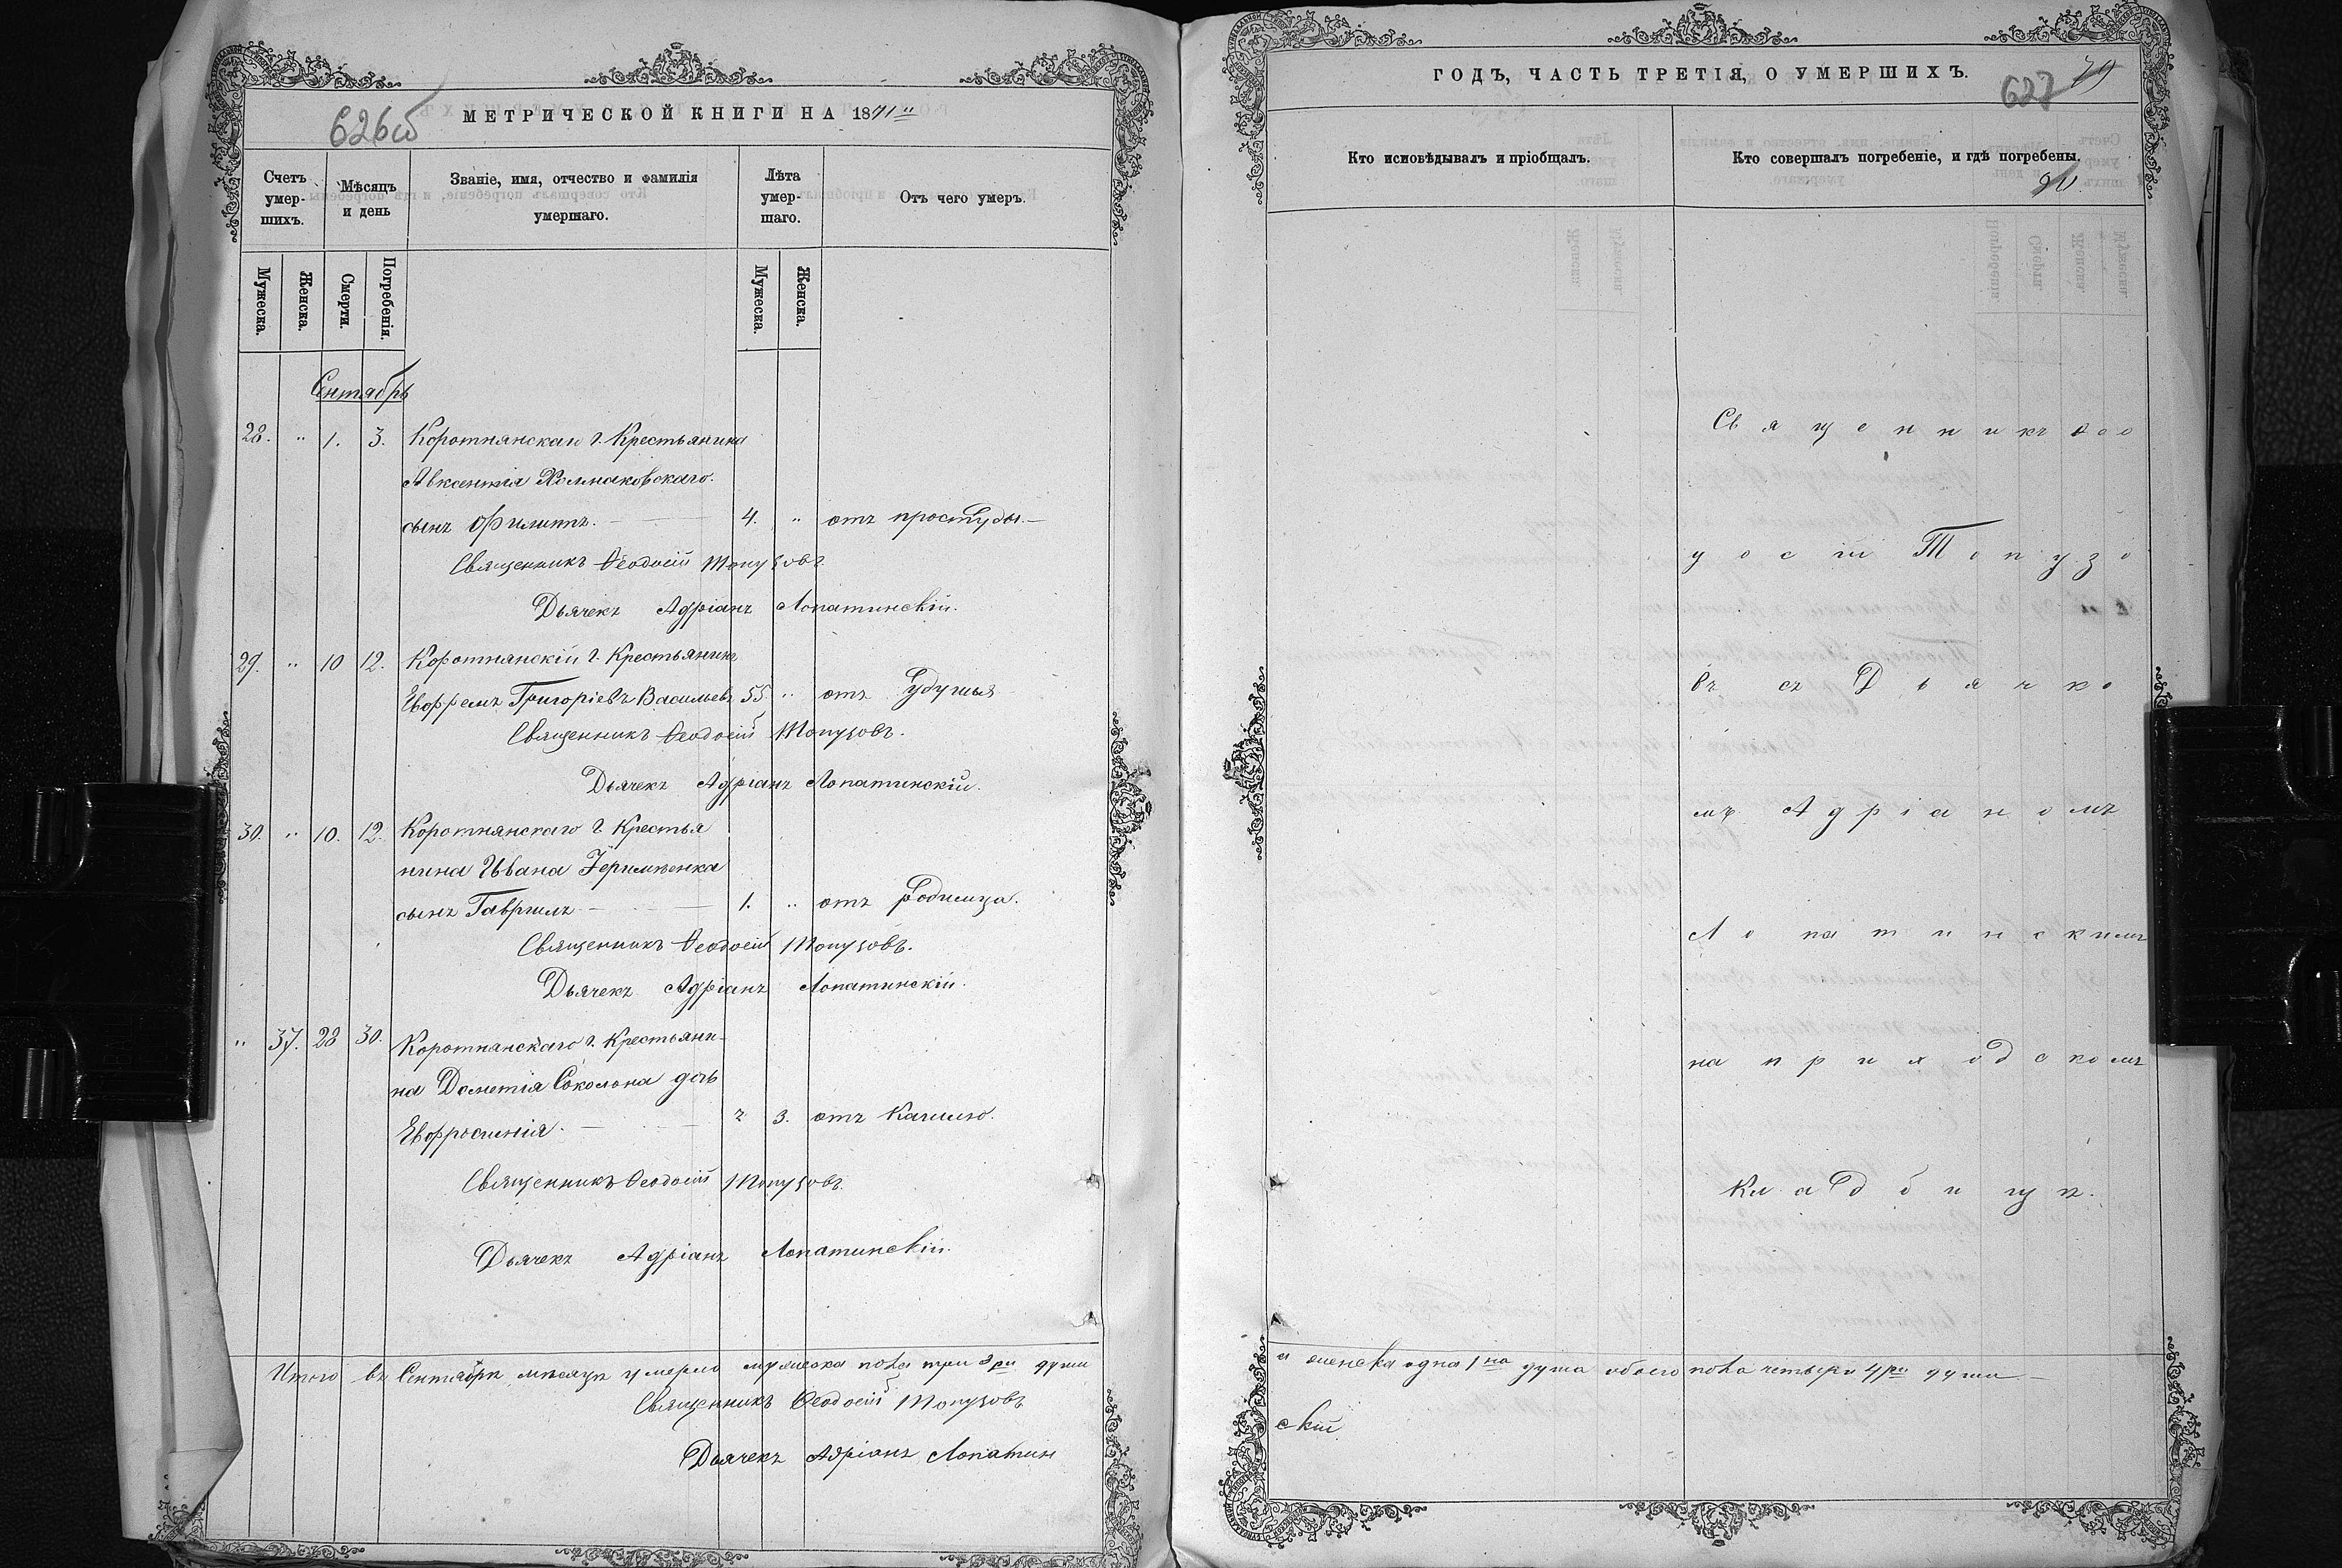 626об
МЕТРИЧЕСКОЙ КНИГИ НА 1871й
Счетъ умер-шихъ.
Мѣсяцъ и день
Званіе, имя, отчество и фамилія умершаго.
Лѣта умер-шаго.
Отъ чего умеръ.
Мужеска.
Женска.
Смерти.
Погребенія.
Мужеска.
Женска.
Сентябрь
28. " 1. 3. Коротнянскаго г. Крестьянина
Авксентія
сынъ Филиппъ. — 4. " отъ простуды.—
Священникъ Ѳеодосій Топузовъ
Дьячекъ Адріанъ Лопатинскій.
29. " 10 12. Коротнянскій г. Крестьянинъ
Евфремъ Григоріевъ Васильевъ 55 " отъ Удушья
Священникъ Ѳеодосій Топузовъ.
Дьячекъ Адріанъ Лопатинскій.
30. " 10. 12. Коротнянскаго г. Крестья
нина Ивана
сынъ Гавріилъ — 1. " отъ Родимца.
Священникъ Ѳеодосій Топузовъ.
Дьячекъ Адріанъ Лопатинскій.
" 37. 28 30. Коротнянскаго г. Крестьяни-
на Дометія Соколона дочь
Евфросинія. — " 3. отъ Кашлю.
Священникъ Ѳеодосій Топузовъ.
Дьячекъ Адріанъ Лопатинскій.
Итого въ Сентябрѣ мѣсяцѣ умерло мужеска пола три 3ри души
Священникъ Ѳеодосій Топузовъ
Дьячекъ Адріанъ Лопатин
ГОДЪ, ЧАСТЬ ТРЕТІЯ, О УМЕРШИХЪ.
627 79
Кто исповѣдывалъ и пріобщалъ.
Кто совершалъ погребеніе, и гдѣ погребены.
90
Священникъ Ѳео
досій Топузо
въ съ Дьячко
мъ Адріаномъ
Лопатинскимъ
на приходскомъ
Кладбищѣ.
а женска одна 1на душа обоего пола четыри 4ри души —
скій